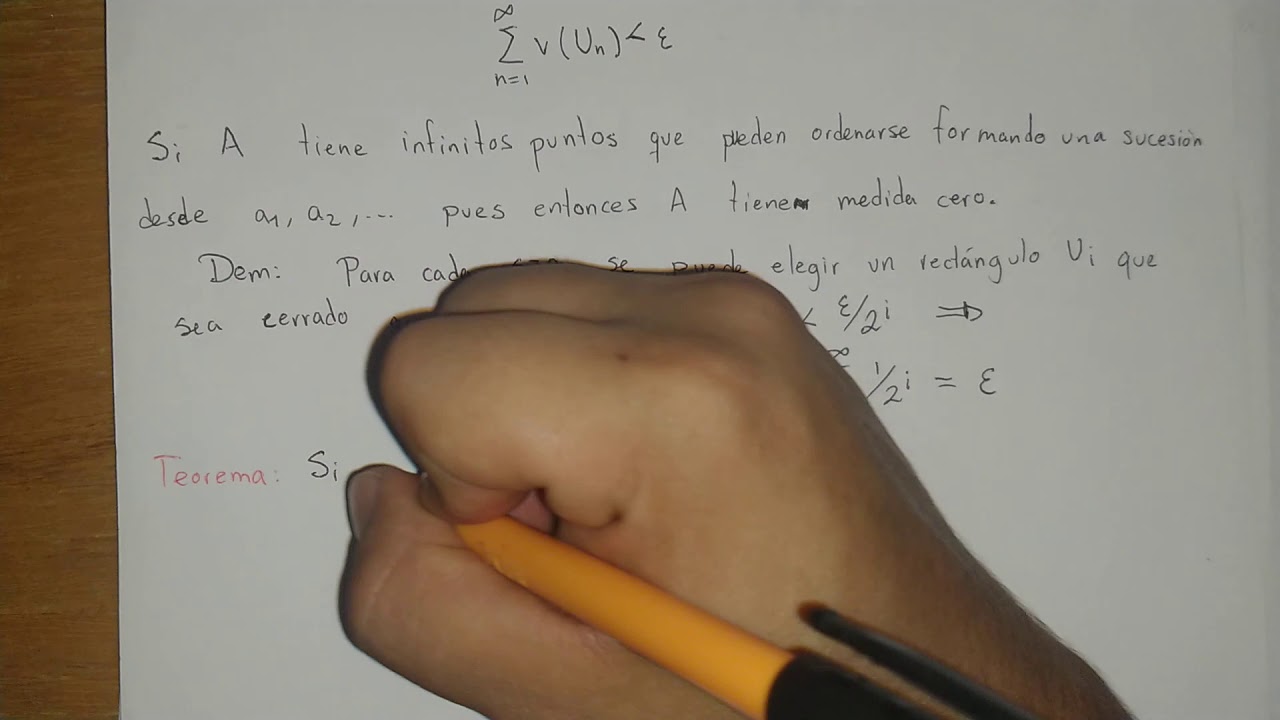 ∞
∑ v(Uₙ) < ε
n=1
Si A tiene infinitos puntos que pueden ordenarse formando una sucesión
desde a₁, a₂, ... pues entonces A tiene medida cero.
Dem: Para cada se puede elegir un rectángulo Ui que
sea cerrado < ε/2i ⇒
∞ 1/2i = ε
Teorema: Si